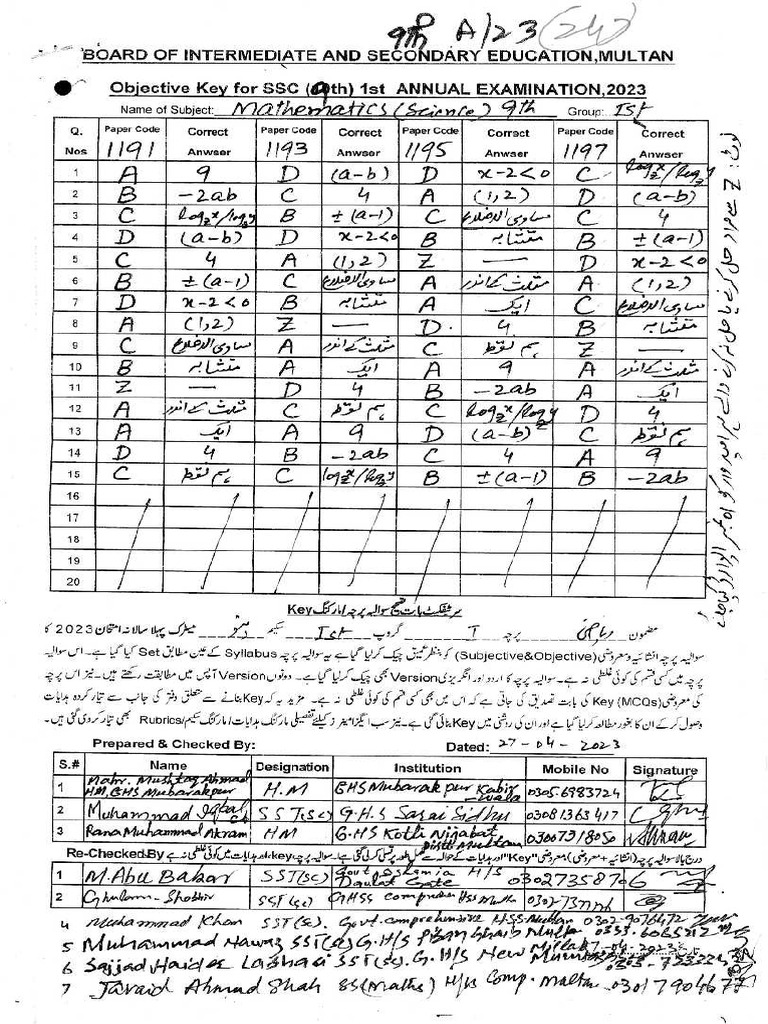 9th A/23 (24)
BOARD OF INTERMEDIATE AND SECONDARY EDUCATION,MULTAN
Objective Key for SSC (9th) 1st ANNUAL EXAMINATION,2023
Name of Subject: Mathematics (Science) 9th Group: Ist
Q. Nos Paper Code 1191 Correct Anwser Paper Code 1193 Correct Anwser Paper Code 1195 Correct Anwser Paper Code 1197 Correct Anwser
1 A 9 D (a-b) D x-2<0 C log_z x/log_z y
2 B -2ab C 4 A (1,2) D (a-b)
3 C log_z x/log_z y B ±(a-1) C مساوی الاضلاع C 4
4 D (a-b) D x-2<0 B متشابہ B ±(a-1)
5 C 4 A (1,2) Z — D x-2<0
6 B ±(a-1) C مساوی الاضلاع A مثلث کے اندر A (1,2)
7 D x-2<0 B متشابہ A ایک C مساوی الاضلاع
8 A (1,2) Z — D 4 B متشابہ
9 C مساوی الاضلاع A مثلث کے اندر C ہم نقطہ Z —
10 B متشابہ A ایک A 9 A مثلث کے اندر
11 Z — D 4 B -2ab A ایک
12 A مثلث کے اندر C ہم نقطہ C log_z x/log_z y D 4
13 A ایک A 9 D (a-b) C ہم نقطہ
14 D 4 B -2ab C 4 A 9
15 C ہم نقطہ C log_z x/log_z y B ±(a-1) B -2ab
16
17
18
19
20
سرٹیفکیٹ بابت تصحیح سوالیہ پرچہ/مارکنگ Key
مضمون ریاضی پرچہ I گروپ Ist میٹرک پہلا سالانہ امتحان 2023 کا
سوالیہ پرچہ انشائیہ و معروضی (Subjective&Objective) کو بنظر عمیق چیک کر لیا گیا ہے یہ سوالیہ پرچہ Syllabus کے عین مطابق Set کیا گیا ہے۔ اس سوالیہ
پرچہ میں کسی قسم کی کوئی غلطی نہ ہے۔ سوالیہ پرچہ کا اردو اور انگریزی Version بھی چیک کر لیا گیا ہے۔ دونوں Version آپس میں مطابقت رکھتے ہیں۔ نیز اس پرچہ
کی معروضی (MCQs) Key کی بابت تصدیق کی جاتی ہے کہ اس میں بھی کسی قسم کی کوئی غلطی نہ ہے۔ مزید یہ کہ Key بنانے سے متعلق دفتر کی جانب سے تیار کردہ ہدایات
وصول کر کے ان کا بغور مطالعہ کر لیا گیا ہے اور ان کی روشنی میں Key بنائی گئی ہے۔ نیز سب ایگزامینرز کیلئے تفصیلی مارکنگ ہدایات/مارکنگ سکیم/Rubrics بھی تیار کر دی گئی ہیں۔
Prepared & Checked By: Dated: 27-04-2023
S.# Name Designation Institution Mobile No Signature
1 Mahr. Mushtaq Ahmad HM, GHS Mubarakpur H.M GHS Mubarakpur Kabirwala 0305-6983724
2 Muhammad Iqbal SST(SC) G.H.S Sarai Sidhu 03081363417
3 Rana Muhammad Akram HM G.HS Kotli Nijabat Distt Multan 030067318050
Re-Checked By
1 M. Abu Bakar SST(SC) Govt Islamia H/S Daulat Gate 03027358706
2 Ghulam Shabbir SST(SC) GHSS comprehensive
4 Muhammad Khan SST(SC). Govt. comprehensive HSS Multan 0302-9076472
5 Muhammad Nawaz SST(SC) G.H/S
6 Sajjad Haider Lashari SST(SC). G.H/S New Multan 27-04-2023
7 Javaid Ahmad Shah SS(Maths) H/S Comp. Multan 03017904677